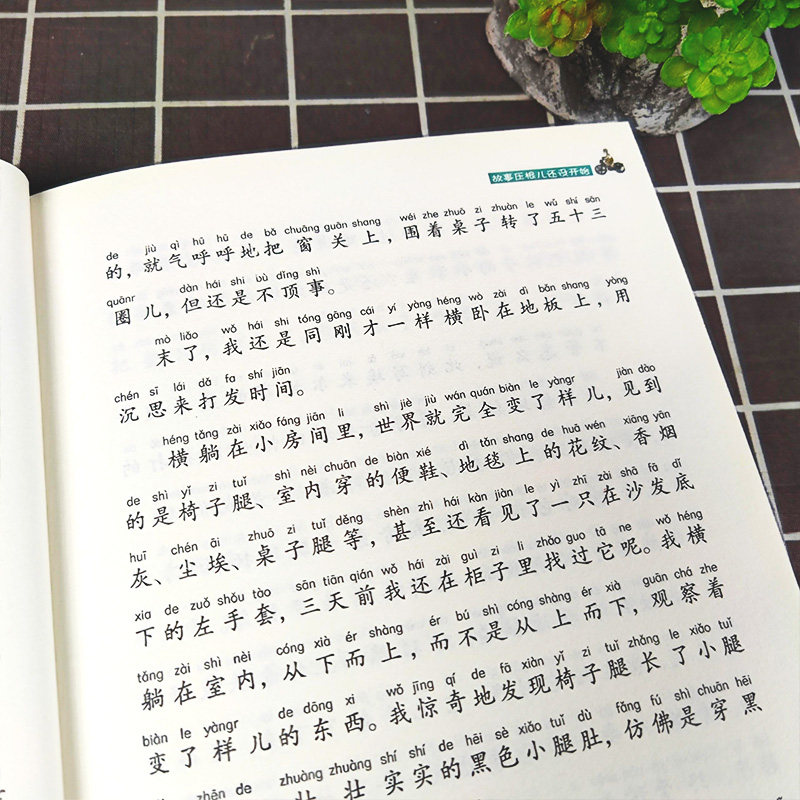 故事压根儿还没开始
de jiù qì hū hū de bǎ chuāng guān shang wéi zhe zhuō zi zhuàn le wǔ shí sān
的，就气呼呼地把窗关上，围着桌子转了五十三
quānr dàn hái shi bù dǐng shì
圈儿，但还是不顶事。
mò liǎo wǒ hái shi tóng gāng cái yí yàng héng wò zài dì bǎn shang yòng
末了，我还是同刚才一样横卧在地板上，用
chén sī lái dǎ fa shí jiān
沉思来打发时间。
héng tǎng zài xiǎo fáng jiān li shì jiè jiù wán quán biàn le yàngr jiàn dào
横躺在小房间里，世界就完全变了样儿，见到
de shì yǐ zi tuǐ shì nèi chuān de biàn xié dì tǎn shang de huā wén xiāng yān
的是椅子腿、室内穿的便鞋、地毯上的花纹、香烟
huī chén āi zhuō zi tuǐ děng shèn zhì hái kàn jiàn le yì zhī zài shā fā dǐ
灰、尘埃、桌子腿等，甚至还看见了一只在沙发底
xia de zuǒ shǒu tào sān tiān qián wǒ hái zài guì zi li zhǎo guo tā ne wǒ héng
下的左手套，三天前我还在柜子里找过它呢。我横
tǎng zài shì nèi cóng xià ér shàng ér bú shì cóng shàng ér xià guān chá zhe
躺在室内，从下而上，而不是从上而下，观察着
biàn le yàngr de dōng xi wǒ jīng qí de fā xiàn yǐ zi tuǐ zhǎng le xiǎo tuǐ
变了样儿的东西。我惊奇地发现椅子腿长了小腿
zhuàng zhuàng shí shí de hēi sè xiǎo tuǐ dù fǎng fú shì chuān hēi
壮壮实实的黑色小腿肚，仿佛是穿黑
zhēn de